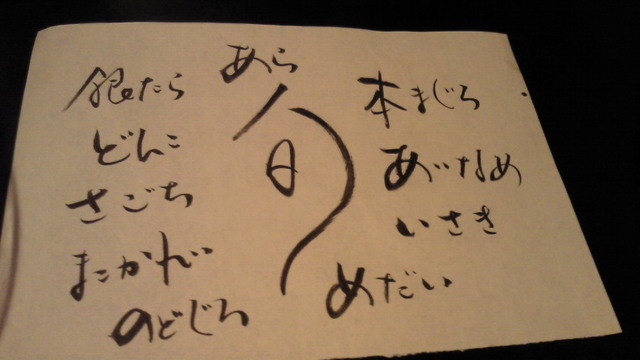 本まぐろ
あいなめ
いさき
めだい
あら
旬
銀たら
どんこ
さごち
まこかれい
のどぐろ